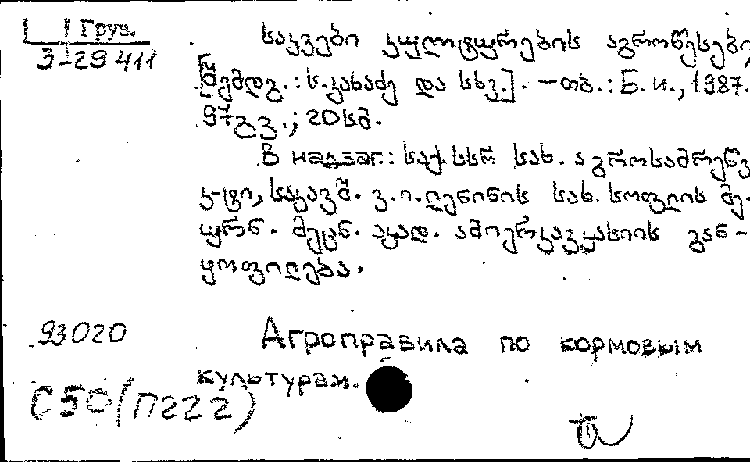 Груз.
3-29411
საკვები კულტურების აგროწესები,
[შემდგ.: ს.კახაძე და სხვ.]. – თბ.: Б. и., 1987.
97გვ.; 20სმ.
В надзаг.: საქ.სსრ სახ. აგროსამრეწვ.
კ-ტი, საკავშ. ვ.ი.ლენინის სახ. სოფლის მე-
ურნ. მეცნ. აკად. ამიერკავკასიის გან-
ყოფილება.
93020
Агроправила по кормовым
культурам.
С50(П222)